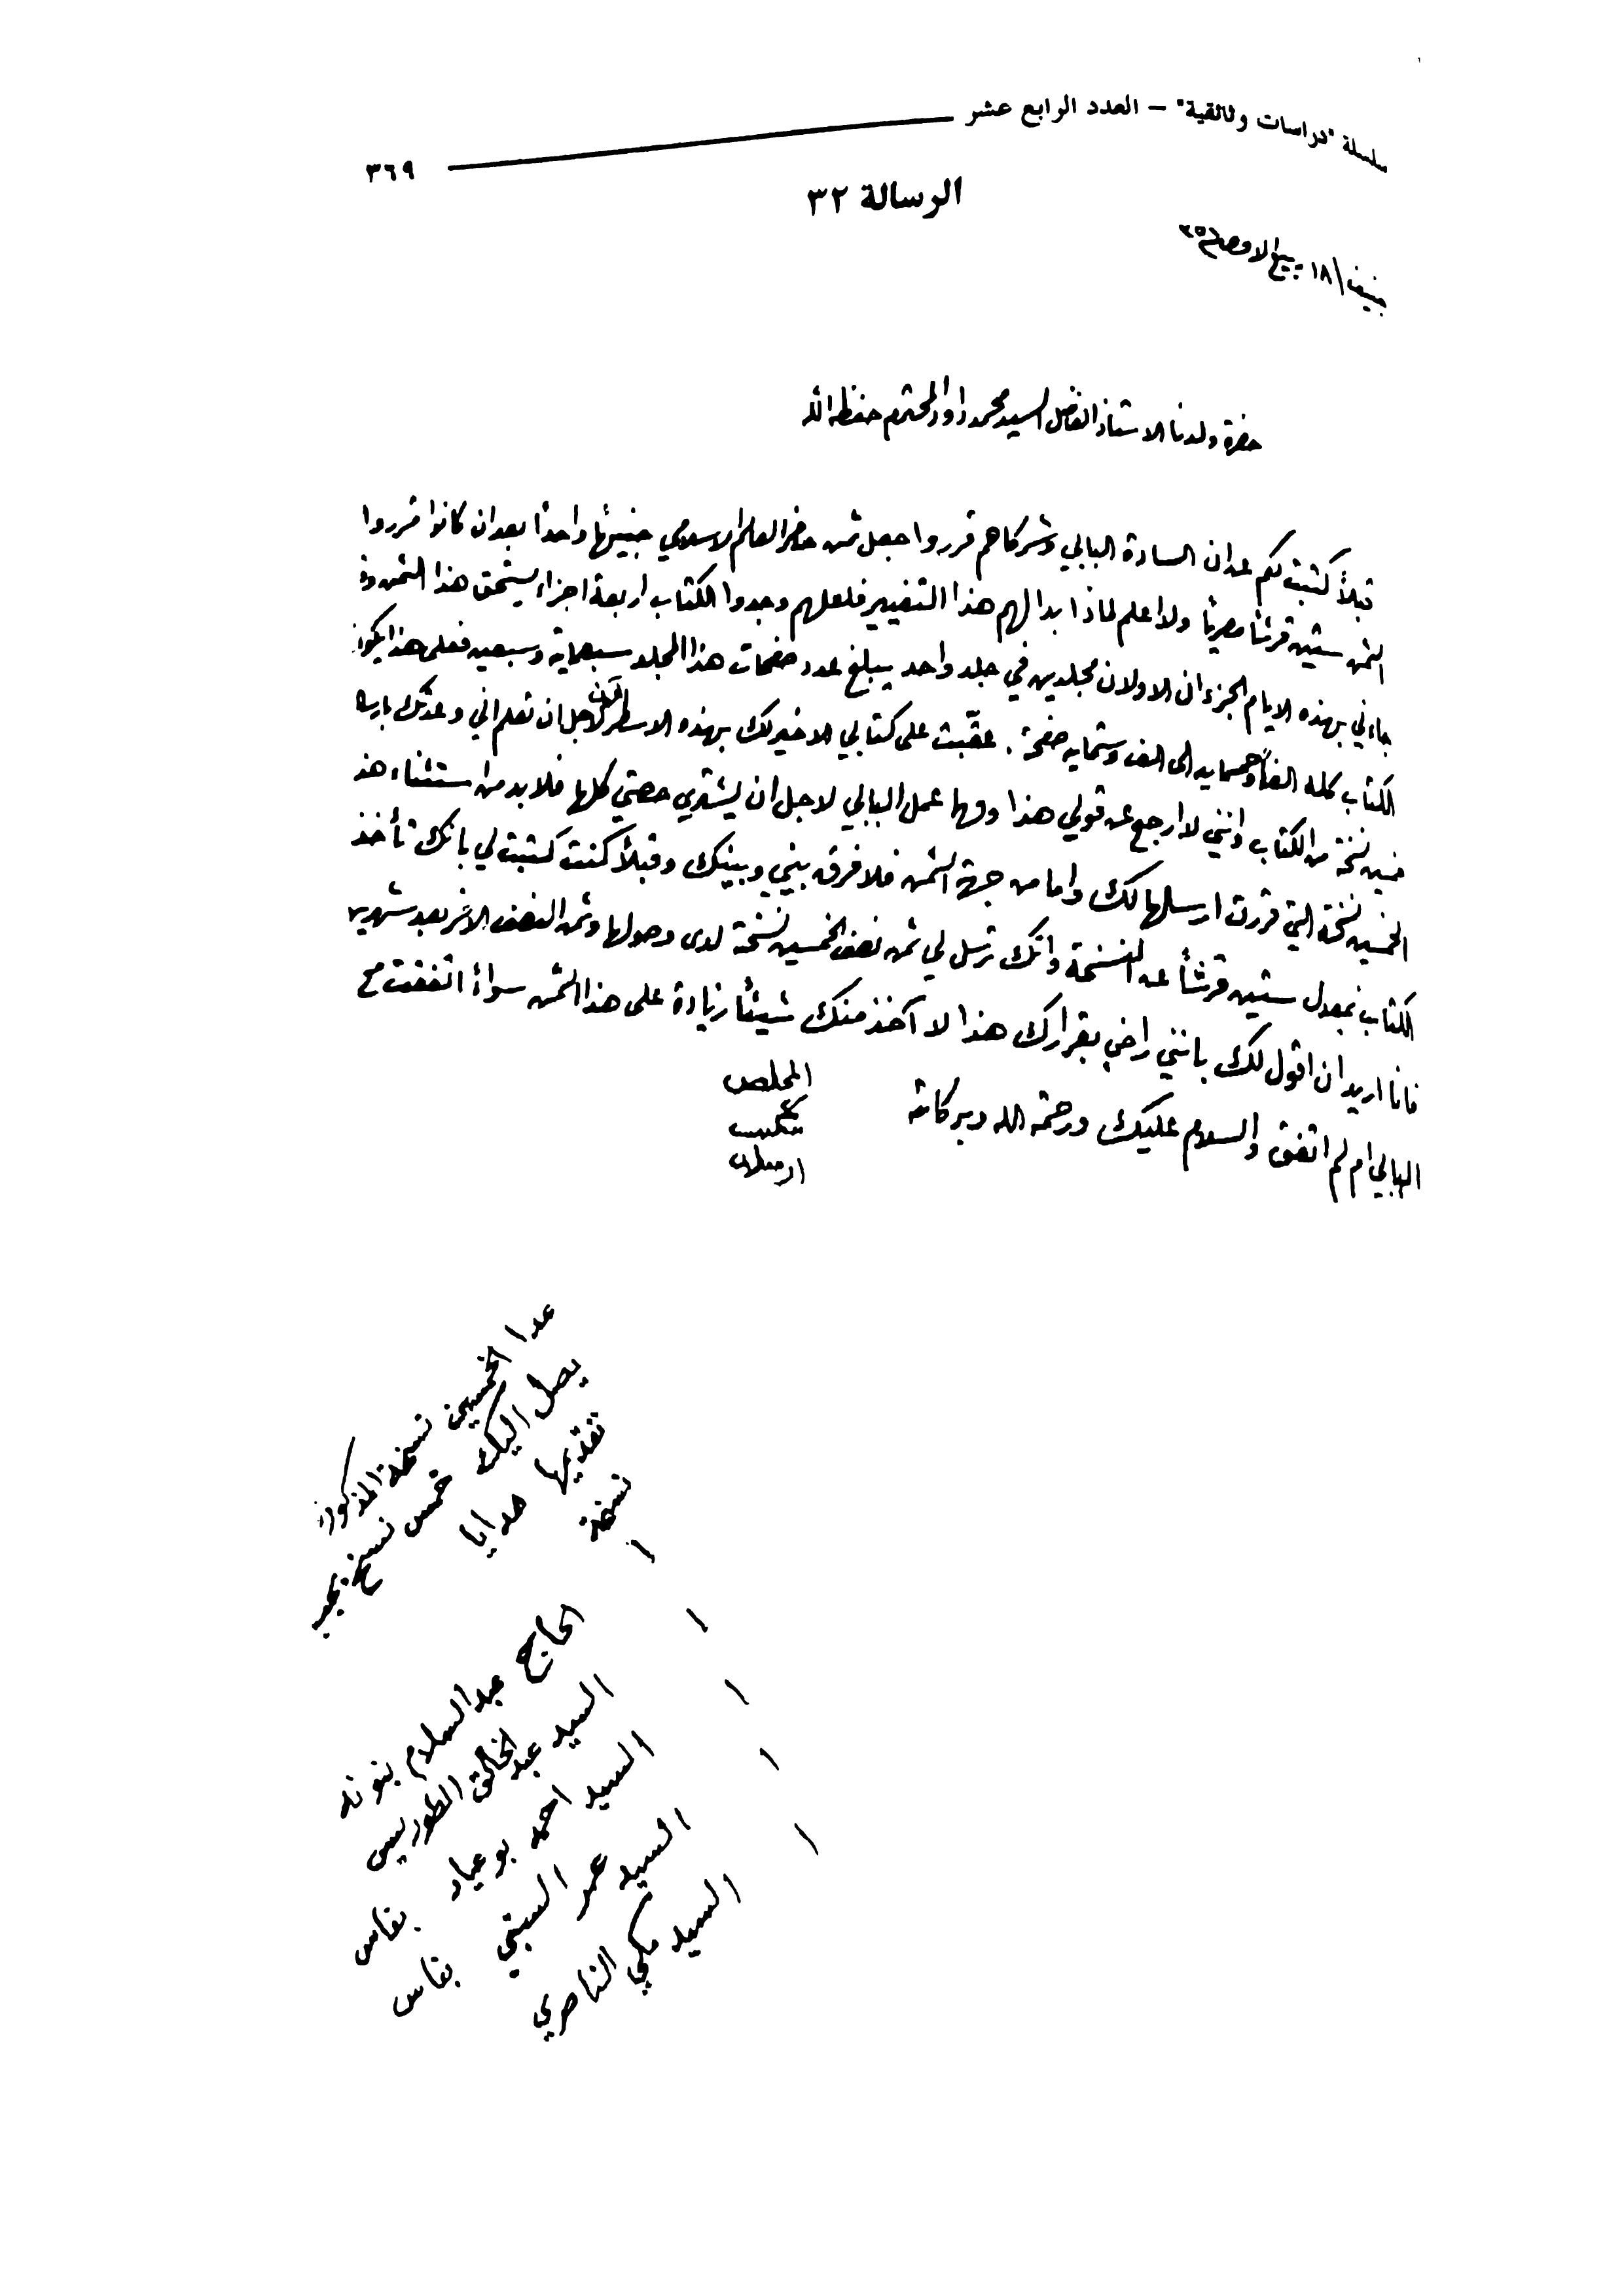 سلسلة "دراسات وثائقية" – العدد الرابع عشر
٣٦٩
الرسالة ٣٢
جنيف ١٨ ربيع الاول
حضرة ولدنا الاستاذ الفاضل السيد محمد داود المحترم حفظه الله
قبلاً كتبت لكم عن ان السادة البابي وشركاهم قرروا جعل ثمن حاضر العالم الاسلامي جنيهاً واحداً بعد ان كانوا قرروا
الثمن ستين قرشاً مصرياً ولا اعلم لماذا بدا لهم هذا التغيير فلعلهم وجدوا الكتاب اربعة اجزاء يستحق هذا الثمن وقد
جاءني بهذه الايام الجزءان الاولان مجلدين في جلد واحد يبلغ عدد صفحات هذا المجلد سبعماية وسبعين فعلى هذا يكون
الكتاب كله الفاً وخمسماية الى الف وستماية صفحة . عقّبت على كتابي الاخير لك بهذه الاسطر الآن لاجل ان تعلم اني وعدتك بارسال
خمسين نسخة من الكتاب وانني لا ارجع عن قولي هذا ومهما عمل البابي لاجل ان يشتري حصتي كلها فلا بد من استثناء هذه
الخمسين نسخة التي قررت ارسالها لك واما من جهة الثمن فلا فرق بيني وبينك وقبلاً كنت كتبت لي بانك تأخذ
الكتاب بمعدل ستين قرشاً عن النسخة وانك ترسل لي ثمن نصف الخمسين نسخة لدى وصولها وثمن النصف الآخر بعد شهرين
فانا اريد ان اقول لك بانني راضٍ بقرارك هذا لا آخذ منك شيئاً زيادة على هذا الثمن سواءً اتفقت مع
البابي ام لم اتفق والسلام عليك ورحمة الله وبركاته
المخلص
شكيب
ارسلان
عدا الخمسين نسخة المذكورة
يصل اليك خمس نسخ يجب
تقديمها هدايا
نسخة
١ الحاج عبد السلام بنونه
١ السيد عبد الخالق الطوريس
١ السيد احمد بوعياد بفاس
١ السيد عمر السبتي بفاس
١ السيد مكي الناصري